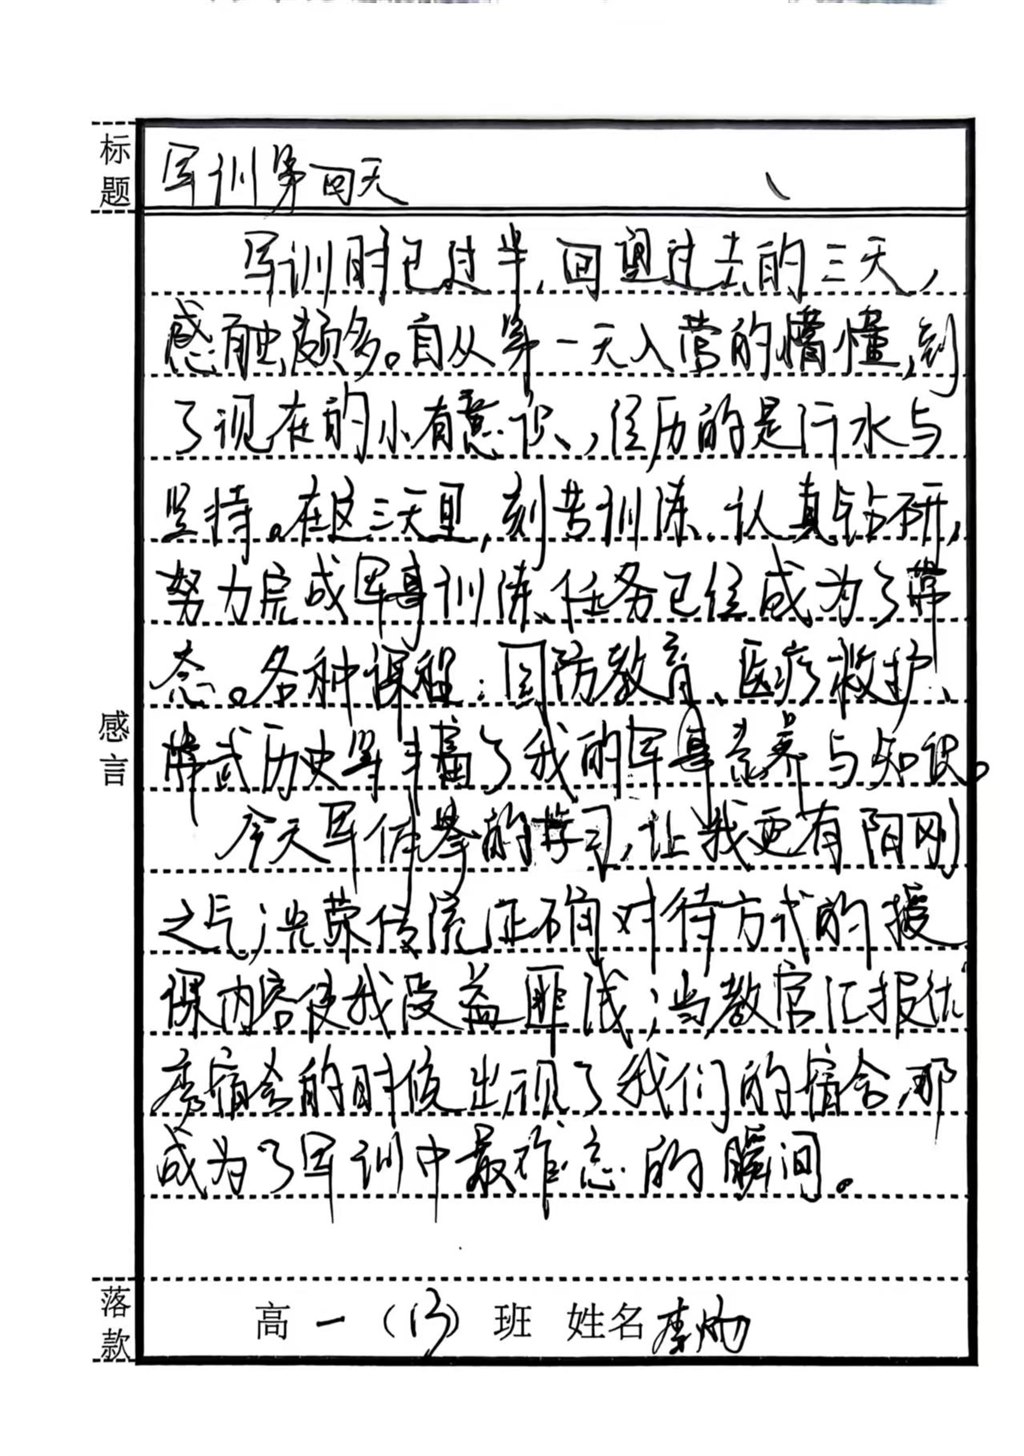 标题
军训第四天
军训时已过半，回望过去的三天，
感触颇多。自从第一天入营的懵懂，到
了现在的小有意识，经历的是汗水与
坚持。在这三天里，刻苦训练、认真钻研，
努力完成军事训练、任务已经成为了常
态。各种课程：国防教育、医疗救护、
阵武历史等丰富了我的军事素养与知识。
今天军体拳的学习，让我更有阳刚
之气；光荣传统正确对待方式的授
课内容使我受益匪浅；当教官汇报优
秀宿舍的时候出现了我们的宿舍，那
成为了军训中最难忘的瞬间。
感言
落款
高一（13）班 姓名